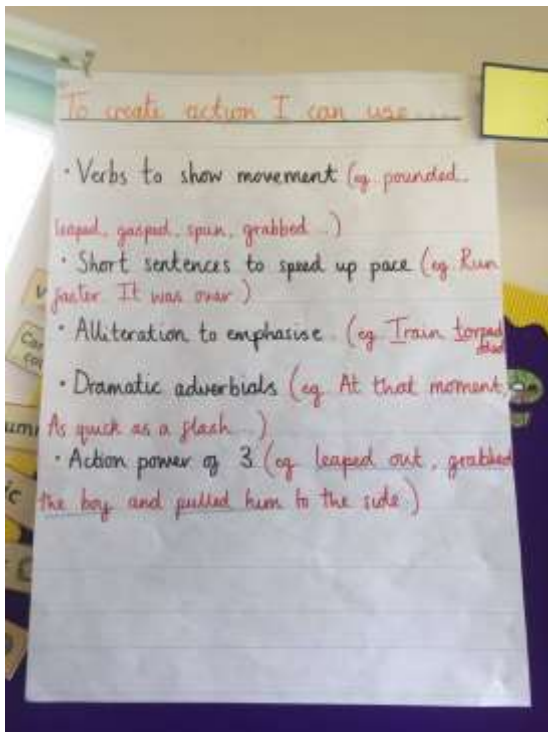 To create action I can use...
· Verbs to show movement (eg. pounded,
leaped, gasped, spun, grabbed...)
· Short sentences to speed up pace (eg. Run
faster. It was over.)
· Alliteration to emphasise. (eg. Train torped
oed
· Dramatic adverbials (eg. At that moment,
As quick as a flash...)
· Action power of 3 (eg. leaped out, grabbed
the boy and pulled him to the side.)